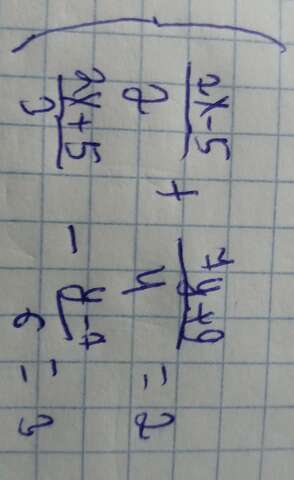 2x-5 / 2 + 7y+9 / 4 = 2
2x+5 / 3 - y-7 / 6 = 3